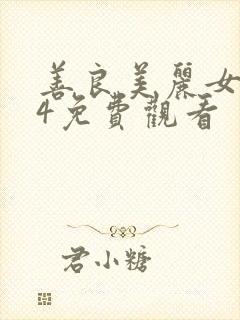 善良美麗女
4免費觀看
君小糖